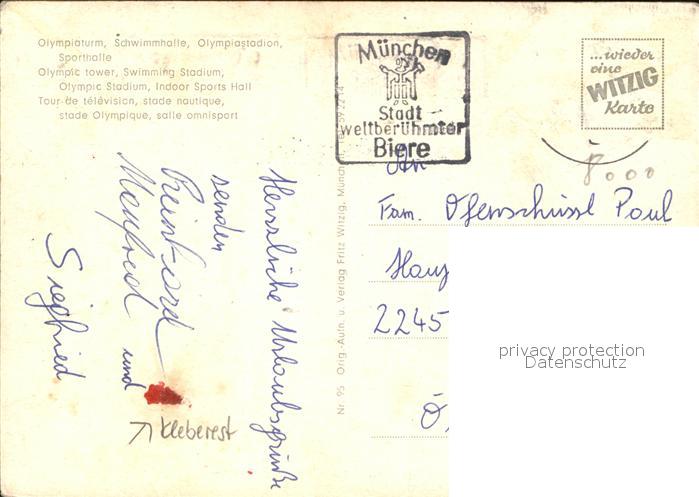 Olympiaturm, Schwimmhalle, Olympiastadion,
Sporthalle
Olympic tower, Swimming Stadium,
Olympic Stadium, Indoor Sports Hall
Tour de télévision, stade nautique,
stade Olympique, salle omnisport
München
Stadt
weltberühmter
Biere
...wieder
eine
WITZIG
Karte
8000
An
Fam. Ofenschüssl Paul
Hau
2245
Ö
privacy protection
Datenschutz
Herzliche Urlaubsgrüße
senden
Reinhard
Manfred und
Siegfried
Kleberest
Nr. 95 Orig.-Aufn. u. Verlag Fritz Witzig, Münch